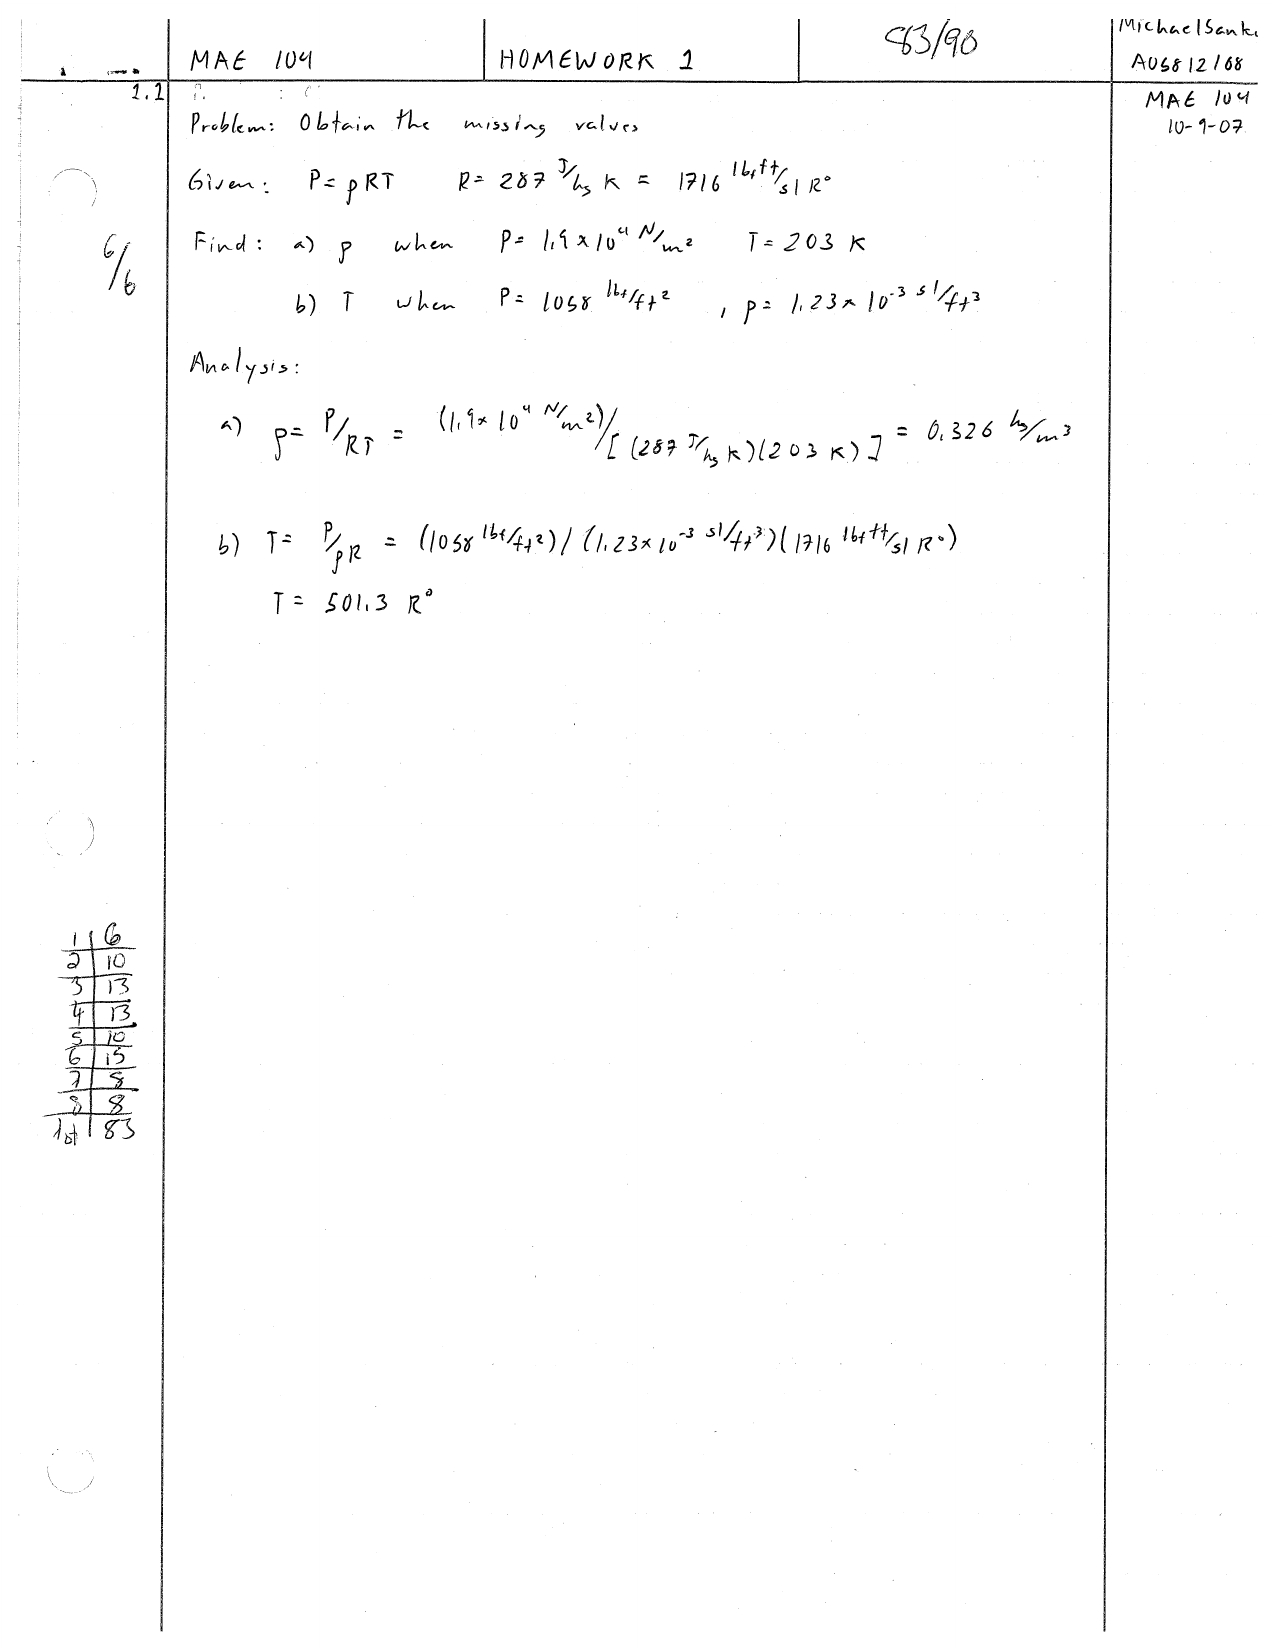 MAE 104 HOMEWORK 1 83/90 Michael Sank
A05812168
1.1 MAE 104
10-9-07
Problem: Obtain the missing values
Given: P = ρRT R = 287 J/kg K = 1716 lbf ft/sl R°
6/6
Find: a) ρ when P = 1.9 x 10⁴ N/m² T = 203 K
b) T when P = 1058 lbf/ft² , ρ = 1.23 x 10⁻³ sl/ft³
Analysis:
a) ρ = P/RT = (1.9 x 10⁴ N/m²)/[(287 J/kg K)(203 K)] = 0.326 kg/m³
b) T = P/ρR = (1058 lbf/ft²)/(1.23 x 10⁻³ sl/ft³)(1716 lbf ft/sl R°)
T = 501.3 R°
1 6
2 10
3 13
4 13
5 10
6 15
7 8
8 8
tot 83